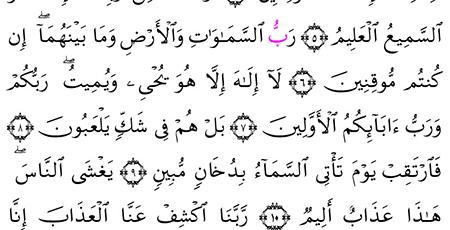 ٱلسَّمِيعُ ٱلْعَلِيمُ ۝٥ رَبُّ ٱلسَّمَـٰوَٰتِ وَٱلْأَرْضِ وَمَا بَيْنَهُمَآ ۖ إِن
كُنتُم مُّوقِنِينَ ۝٦ لَآ إِلَـٰهَ إِلَّا هُوَ يُحْىِۦ وَيُمِيتُ ۖ رَبُّكُمْ
وَرَبُّ ءَابَآئِكُمُ ٱلْأَوَّلِينَ ۝٧ بَلْ هُمْ فِى شَكٍّ يَلْعَبُونَ ۝٨
فَٱرْتَقِبْ يَوْمَ تَأْتِى ٱلسَّمَآءُ بِدُخَانٍ مُّبِينٍ ۝٩ يَغْشَى ٱلنَّاسَ ۖ
هَـٰذَا عَذَابٌ أَلِيمٌ ۝١٠ رَّبَّنَا ٱكْشِفْ عَنَّا ٱلْعَذَابَ إِنَّا